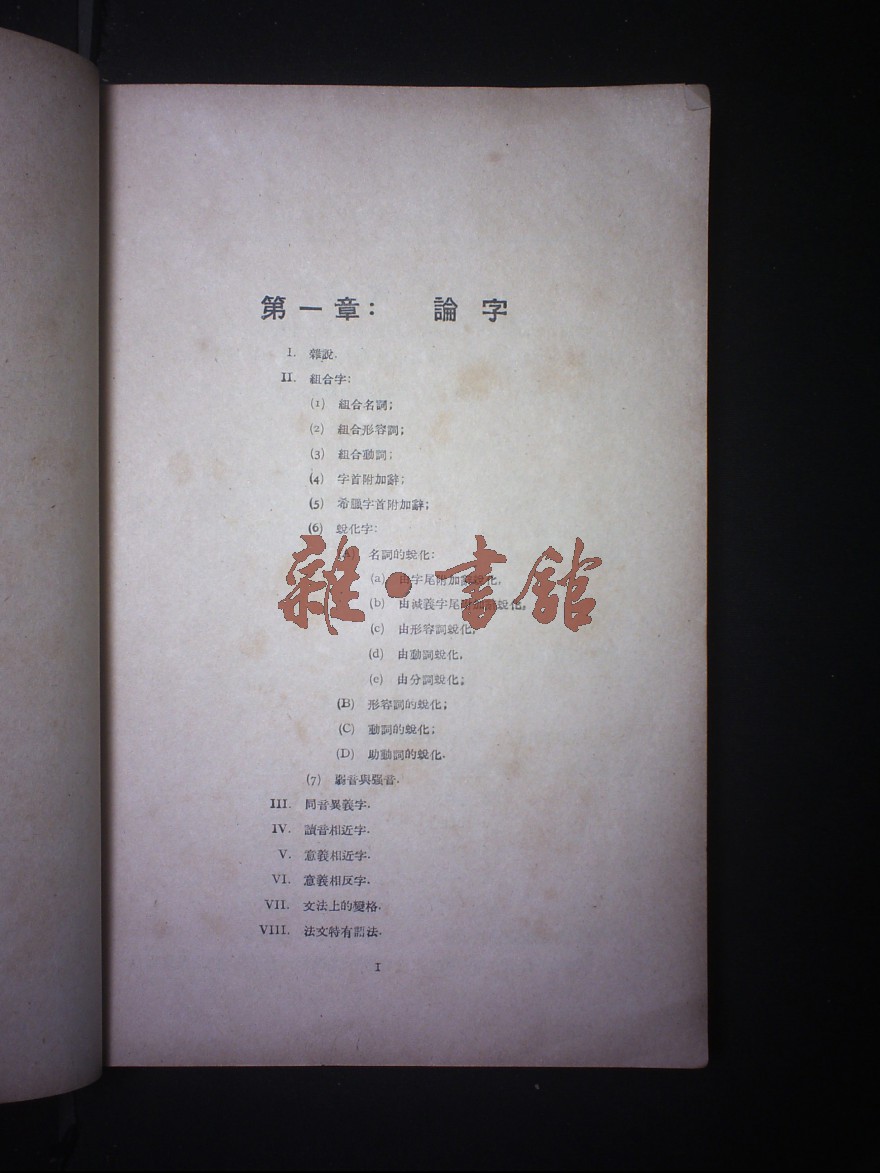 第一章： 論字
I. 雜說.
II. 組合字:
(1) 組合名詞;
(2) 組合形容詞;
(3) 組合動詞;
(4) 字首附加辭;
(5) 希臘字首附加辭;
(6) 蛻化字:
(A) 名詞的蛻化:
(a) 由字尾附加辭蛻化,
(b) 由減義字尾附加辭蛻化,
(c) 由形容詞蛻化,
(d) 由動詞蛻化,
(e) 由分詞蛻化;
(B) 形容詞的蛻化;
(C) 動詞的蛻化;
(D) 助動詞的蛻化.
(7) 弱音與强音.
III. 同音異義字.
IV. 讀音相近字.
V. 意義相近字.
VI. 意義相反字.
VII. 文法上的變格.
VIII. 法文特有語法.
I
雜·書館